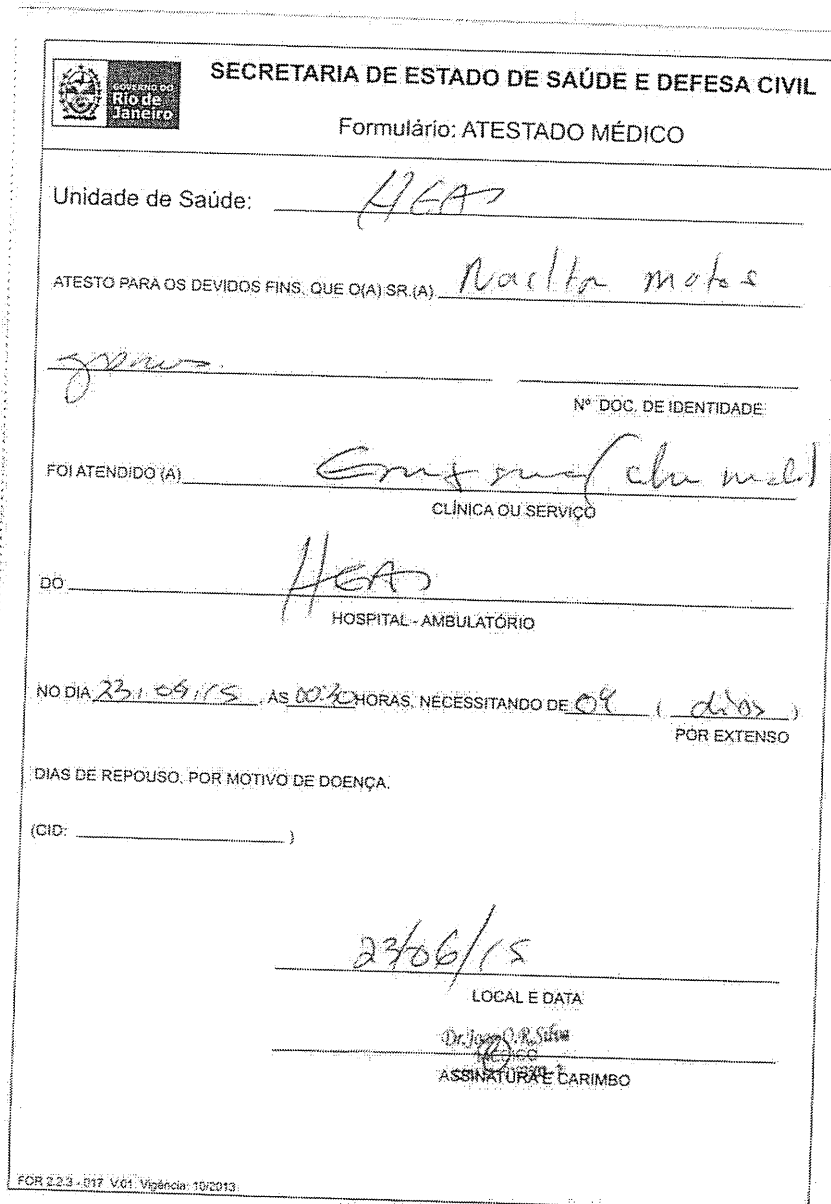 GOVERNO DO
Rio de
Janeiro
SECRETARIA DE ESTADO DE SAÚDE E DEFESA CIVIL
Formulário: ATESTADO MÉDICO
Unidade de Saúde: HEAS
ATESTO PARA OS DEVIDOS FINS, QUE O(A) SR.(A)
Nº DOC. DE IDENTIDADE
FOI ATENDIDO (A)
CLÍNICA OU SERVIÇO
DO HEAS
HOSPITAL - AMBULATÓRIO
NO DIA 23, /15, ÀS 00:30 HORAS, NECESSITANDO DE ( dias )
POR EXTENSO
DIAS DE REPOUSO, POR MOTIVO DE DOENÇA.
(CID: )
23/06/15
LOCAL E DATA
Silva
ASSINATURA E CARIMBO
FOR 2.2.3 - 017 V.01. Vigência: 10/2013